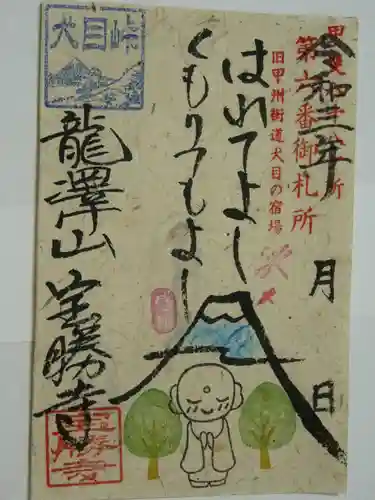 令和三年 月 日
第六番御札所
旧甲州街道犬目の宿場
はれてよし
くもりてもよし
犬目峠
龍澤山 宝勝寺
宝勝寺